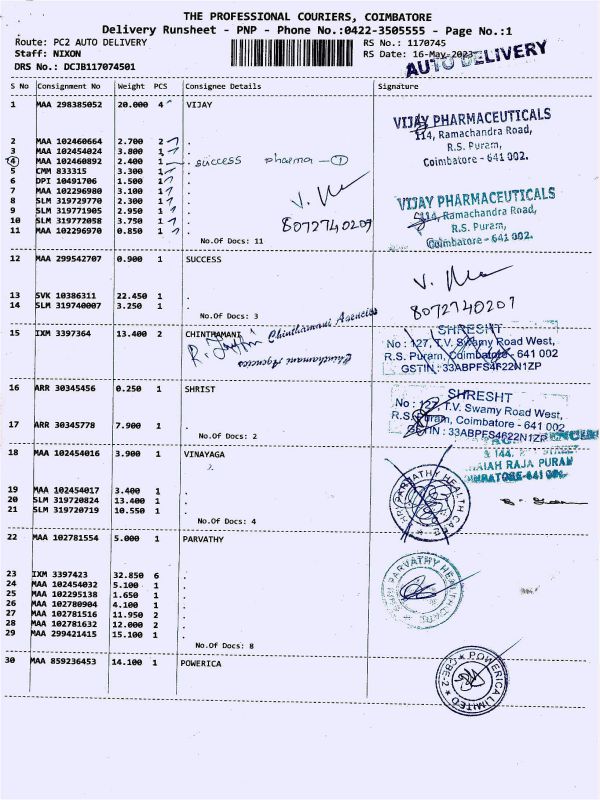 THE PROFESSIONAL COURIERS, COIMBATORE
Delivery Runsheet - PNP - Phone No.:0422-3505555 - Page No.:1
Route: PC2 AUTO DELIVERY RS No.: 1170745
Staff: NIXON RS Date: 16-May-2023
DRS No.: DCJB117074501 AUTO DELIVERY
S No Consignment No Weight PCS Consignee Details Signature
1 MAA 298385052 20.000 4 VIJAY
VIJAY PHARMACEUTICALS
114, Ramachandra Road,
R.S. Puram,
Coimbatore - 641 002.
2 MAA 102460664 2.700 2 .
3 MAA 102454024 3.800 1 .
4 MAA 102460892 2.400 1 . success pharma - 1
5 CMM 833315 3.300 1 .
6 DPI 10491706 1.500 1 .
7 MAA 102296980 3.100 1 .
8 SLM 319729770 2.300 1 .
9 SLM 319771905 2.950 1 .
10 SLM 319772058 3.750 1 .
11 MAA 102296970 0.850 1 .
8072740209
VIJAY PHARMACEUTICALS
114, Ramachandra Road,
R.S. Puram,
Coimbatore - 641 002.
No.Of Docs: 11
12 MAA 299542707 0.900 1 SUCCESS
13 SVK 10386311 22.450 1 .
14 SLM 319740007 3.250 1 .
8072740207
No.Of Docs: 3
15 IXM 3397364 13.400 2 CHINTHAMANI
Chinthamani Agencies
Chinthamani Agencies
SHRESHT
No : 127, T.V. Swamy Road West,
R.S. Puram, Coimbatore - 641 002
GSTIN : 33ABPFS4622N1ZP
16 ARR 30345456 0.250 1 SHRIST
17 ARR 30345778 7.900 1 .
No.Of Docs: 2
SHRESHT
No : 127, T.V. Swamy Road West,
R.S. Puram, Coimbatore - 641 002
GSTIN : 33ABPFS4622N1ZP
18 MAA 102454016 3.900 1 VINAYAGA
& 144,
RAJA PURAM
19 MAA 102454017 3.400 1 .
20 SLM 319720824 13.400 1 .
21 SLM 319720719 10.550 1 .
No.Of Docs: 4
PARVATHY HEALTH CARE
22 MAA 102781554 5.000 1 PARVATHY
23 IXM 3397423 32.850 6 .
24 MAA 102454032 5.100 1 .
25 MAA 102295138 1.650 1 .
26 MAA 102780904 4.100 1 .
27 MAA 102781516 11.950 2 .
28 MAA 102781632 12.000 2 .
29 MAA 299421415 15.100 1 .
No.Of Docs: 8
PARVATHY HEALTH CARE
30 MAA 859236453 14.100 1 POWERICA
POWERICA LIMITED
CBE-2